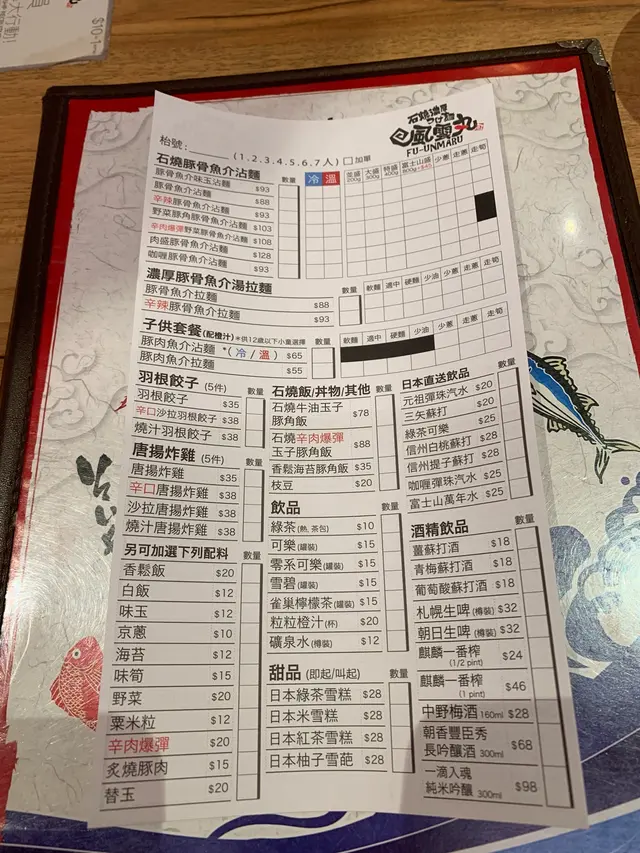 石燒濃厚
つけ麵
風雲丸
FU-UNMARU
枱號:
(1.2.3.4.5.6.7人) 加單
石燒豚骨魚介沾麵 數量 冷 溫 並盛 200g 大盛 300g 特盛 400g 富士山盛 800g +$45 少蔥 走蔥 走筍
豚骨魚介味玉沾麵 $93
豚骨魚介沾麵 $88
辛辣豚骨魚介沾麵 $93
野菜豚角豚骨魚介沾麵 $103
辛肉爆彈野菜豚骨魚介沾麵 $108
肉盛豚骨魚介沾麵 $128
咖喱豚骨魚介沾麵 $93
濃厚豚骨魚介湯拉麵 數量 軟麵 適中 硬麵 少油 少蔥 走蔥 走筍
豚骨魚介拉麵 $88
辛辣豚骨魚介拉麵 $93
子供套餐(配橙汁) *供12歲以下小童選擇 數量 軟麵 適中 硬麵 少油 少蔥 走蔥 走筍
豚肉魚介沾麵 *(冷/溫) $65
豚肉魚介拉麵 $55
羽根餃子 (5件) 數量
羽根餃子 $35
辛口沙拉羽根餃子 $38
燒汁羽根餃子 $38
唐揚炸雞 (5件) 數量
唐揚炸雞 $35
辛口唐揚炸雞 $38
沙拉唐揚炸雞 $38
燒汁唐揚炸雞 $38
另可加選下列配料 數量
香鬆飯 $20
白飯 $12
味玉 $12
京蔥 $10
海苔 $12
味筍 $15
野菜 $20
粟米粒 $12
辛肉爆彈 $20
炙燒豚肉 $15
替玉 $20
石燒飯/丼物/其他 數量
石燒牛油玉子
豚角飯 $78
石燒辛肉爆彈
玉子豚角飯 $88
香鬆海苔豚角飯 $35
枝豆 $20
飲品 數量
綠茶(熱, 茶包) $10
可樂(罐裝) $15
零系可樂(罐裝) $15
雪碧(罐裝) $15
雀巢檸檬茶(罐裝) $15
粒粒橙汁(杯) $20
礦泉水(樽裝) $12
甜品 (即起/叫起) 數量
日本綠茶雪糕 $28
日本米雪糕 $28
日本紅茶雪糕 $28
日本柚子雪葩 $28
日本直送飲品 數量
元祖彈珠汽水 $20
三矢蘇打 $20
綠茶可樂 $25
信州白桃蘇打 $28
信州提子蘇打 $28
咖喱彈珠汽水 $25
富士山萬年水 $25
酒精飲品 數量
薑蘇打酒 $18
青梅蘇打酒 $18
葡萄酸蘇打酒 $18
札幌生啤(樽裝) $32
朝日生啤(樽裝) $32
麒麟一番榨
(1/2 pint) $24
麒麟一番榨
(1 pint) $46
中野梅酒 160ml $28
朝香豐臣秀
長吟釀酒 300ml $68
一滴入魂
純米吟釀 300ml $98